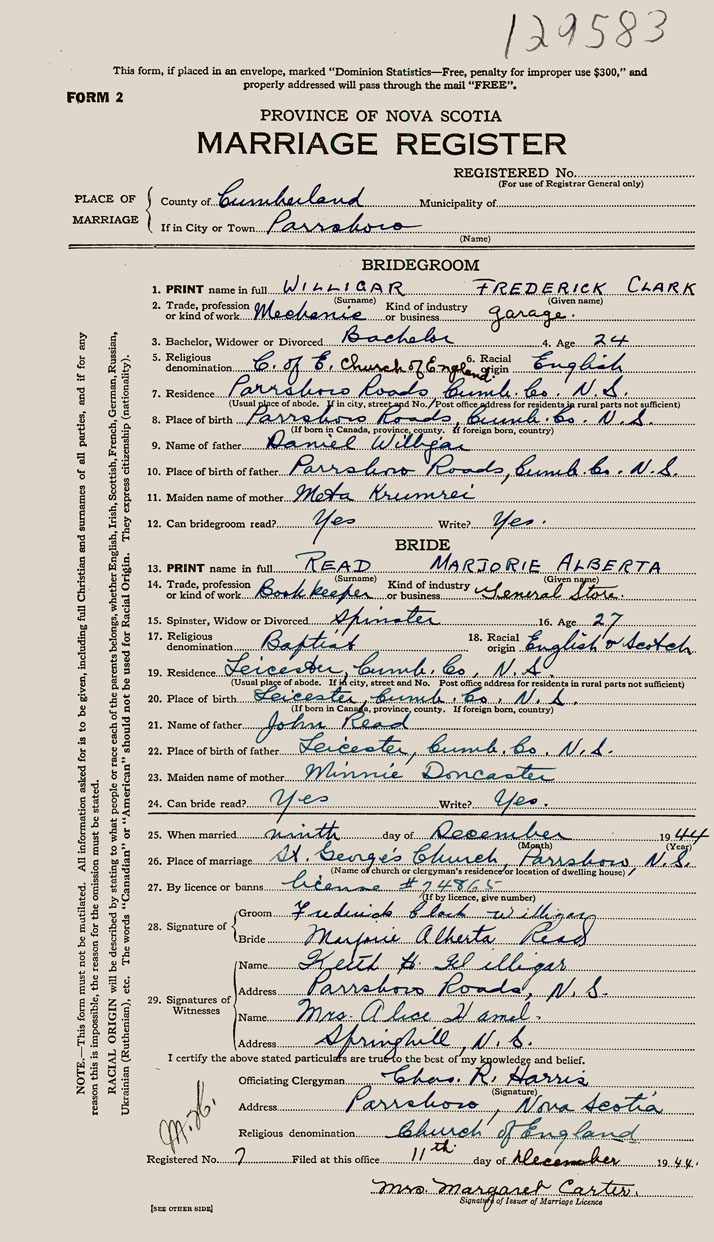 129583
This form, if placed in an envelope, marked "Dominion Statistics—Free, penalty for improper use $300," and
properly addressed will pass through the mail "FREE".
FORM 2
PROVINCE OF NOVA SCOTIA
MARRIAGE REGISTER
REGISTERED No.
(For use of Registrar General only)
PLACE OF MARRIAGE
County of Cumberland Municipality of
If in City or Town Parrsboro
(Name)
BRIDEGROOM
1. PRINT name in full WILLIGAR FREDERICK CLARK
(Surname) (Given name)
2. Trade, profession or kind of work Mechanic Kind of industry or business garage.
3. Bachelor, Widower or Divorced Bachelor 4. Age 24
5. Religious denomination C. of E. Church of England 6. Racial origin English
7. Residence Parrsboro Roads, Cumb. Co. N.S.
(Usual place of abode. If in city, street and No. Post office address for residents in rural parts not sufficient)
8. Place of birth Parrsboro Roads, Cumb. Co. N.S.
(If born in Canada, province, county. If foreign born, country)
9. Name of father Daniel Willigar
10. Place of birth of father Parrsboro Roads, Cumb. Co. N.S.
11. Maiden name of mother Meta Krumrei
12. Can bridegroom read? Yes Write? Yes.
BRIDE
13. PRINT name in full READ MARJORIE ALBERTA
(Surname) (Given name)
14. Trade, profession or kind of work Bookkeeper Kind of industry or business General Store.
15. Spinster, Widow or Divorced Spinster 16. Age 27
17. Religious denomination Baptist 18. Racial origin English & Scotch
19. Residence Leicester, Cumb. Co. N.S.
(Usual place of abode. If in city, street and No. Post office address for residents in rural parts not sufficient)
20. Place of birth Leicester, Cumb. Co. N.S.
(If born in Canada, province, county. If foreign born, country)
21. Name of father John Read
22. Place of birth of father Leicester, Cumb. Co. N.S.
23. Maiden name of mother Minnie Doncaster
24. Can bride read? Yes Write? Yes.
25. When married ninth day of December 1944
(Month) (Year)
26. Place of marriage St. George's Church, Parrsboro N.S.
(Name of church or clergyman's residence or location of dwelling house)
27. By licence or banns license #74865
(If by licence, give number)
28. Signature of
Groom Frederick Clark Willigar
Bride Marjorie Alberta Read
29. Signatures of Witnesses
Name Keith H. Willigar
Address Parrsboro Roads, N.S.
Name Mrs. Alice Hamel.
Address Springhill, N.S.
I certify the above stated particulars are true to the best of my knowledge and belief.
Officiating Clergyman Chas. R. Harris
(Signature)
Address Parrsboro, Nova Scotia
Religious denomination Church of England
Registered No. 7 Filed at this office 11th day of December 1944.
Mrs. Margaret Carter.
Signature of Issuer of Marriage Licence
[SEE OTHER SIDE]
NOTE.—This form must not be mutilated. All information asked for is to be given, including full Christian and surnames of all parties, and if for any
reason this is impossible, the reason for the omission must be stated.
RACIAL ORIGIN will be described by stating to what people or race each of the parents belongs, whether English, Irish, Scottish, French, German, Russian,
Ukrainian (Ruthenian), etc. The words "Canadian" or "American" should not be used for Racial Origin. They express citizenship (nationality).